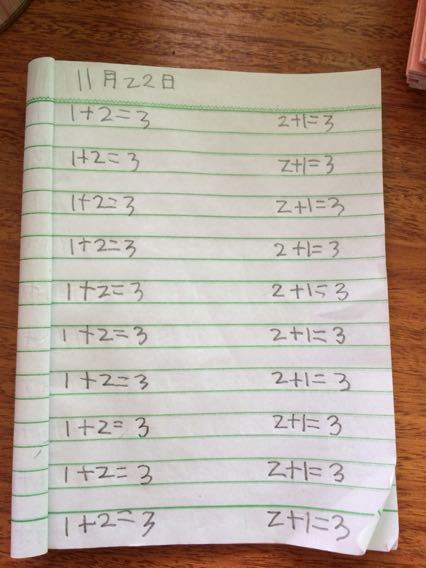 11月22日
1+2=3 2+1=3
1+2=3 2+1=3
1+2=3 2+1=3
1+2=3 2+1=3
1+2=3 2+1=3
1+2=3 2+1=3
1+2=3 2+1=3
1+2=3 2+1=3
1+2=3 2+1=3
1+2=3 2+1=3